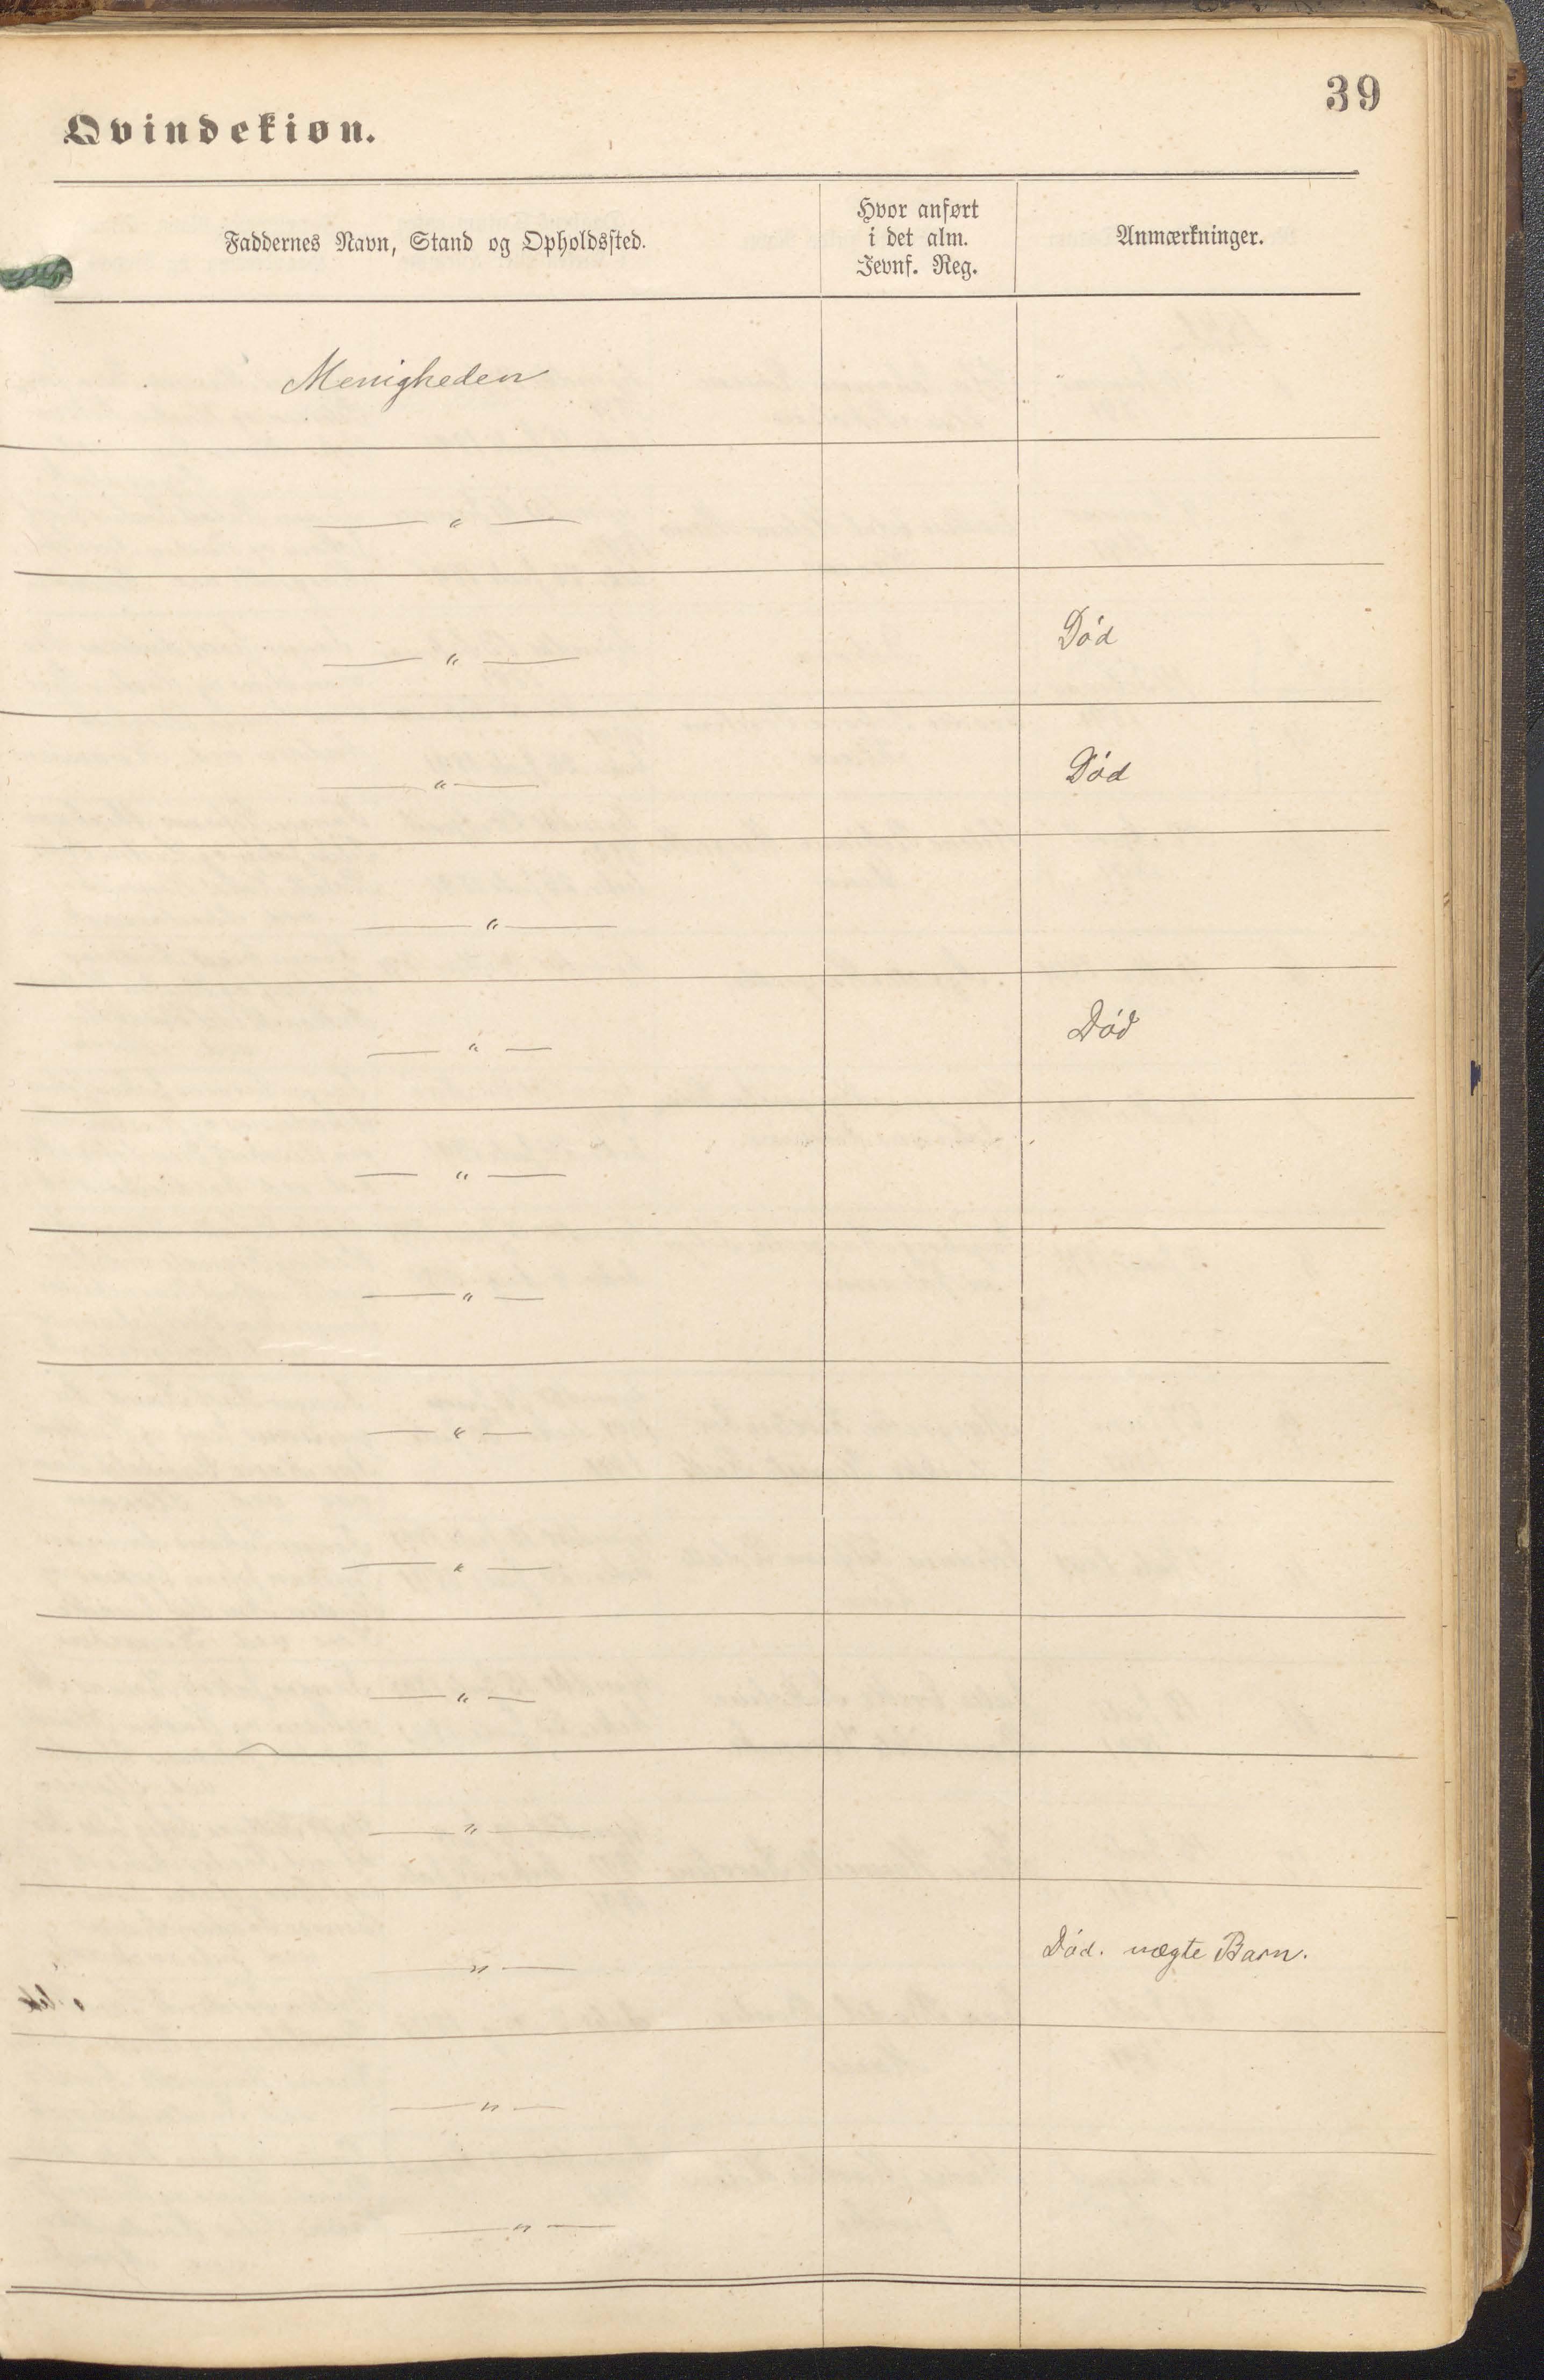 39
Qvindekiøn.
Faddernes Navn, Stand og Opholdssted.
Hvor anført
i det alm.
Jevnf. Reg.
Anmærkninger.
Menigheden
— " —
— " —
Død
— " —
Død
— " —
— " —
Død
— " —
— " —
— " —
— " —
— " —
— " —
— " —
Død. uægte Barn.
— " —
— " —